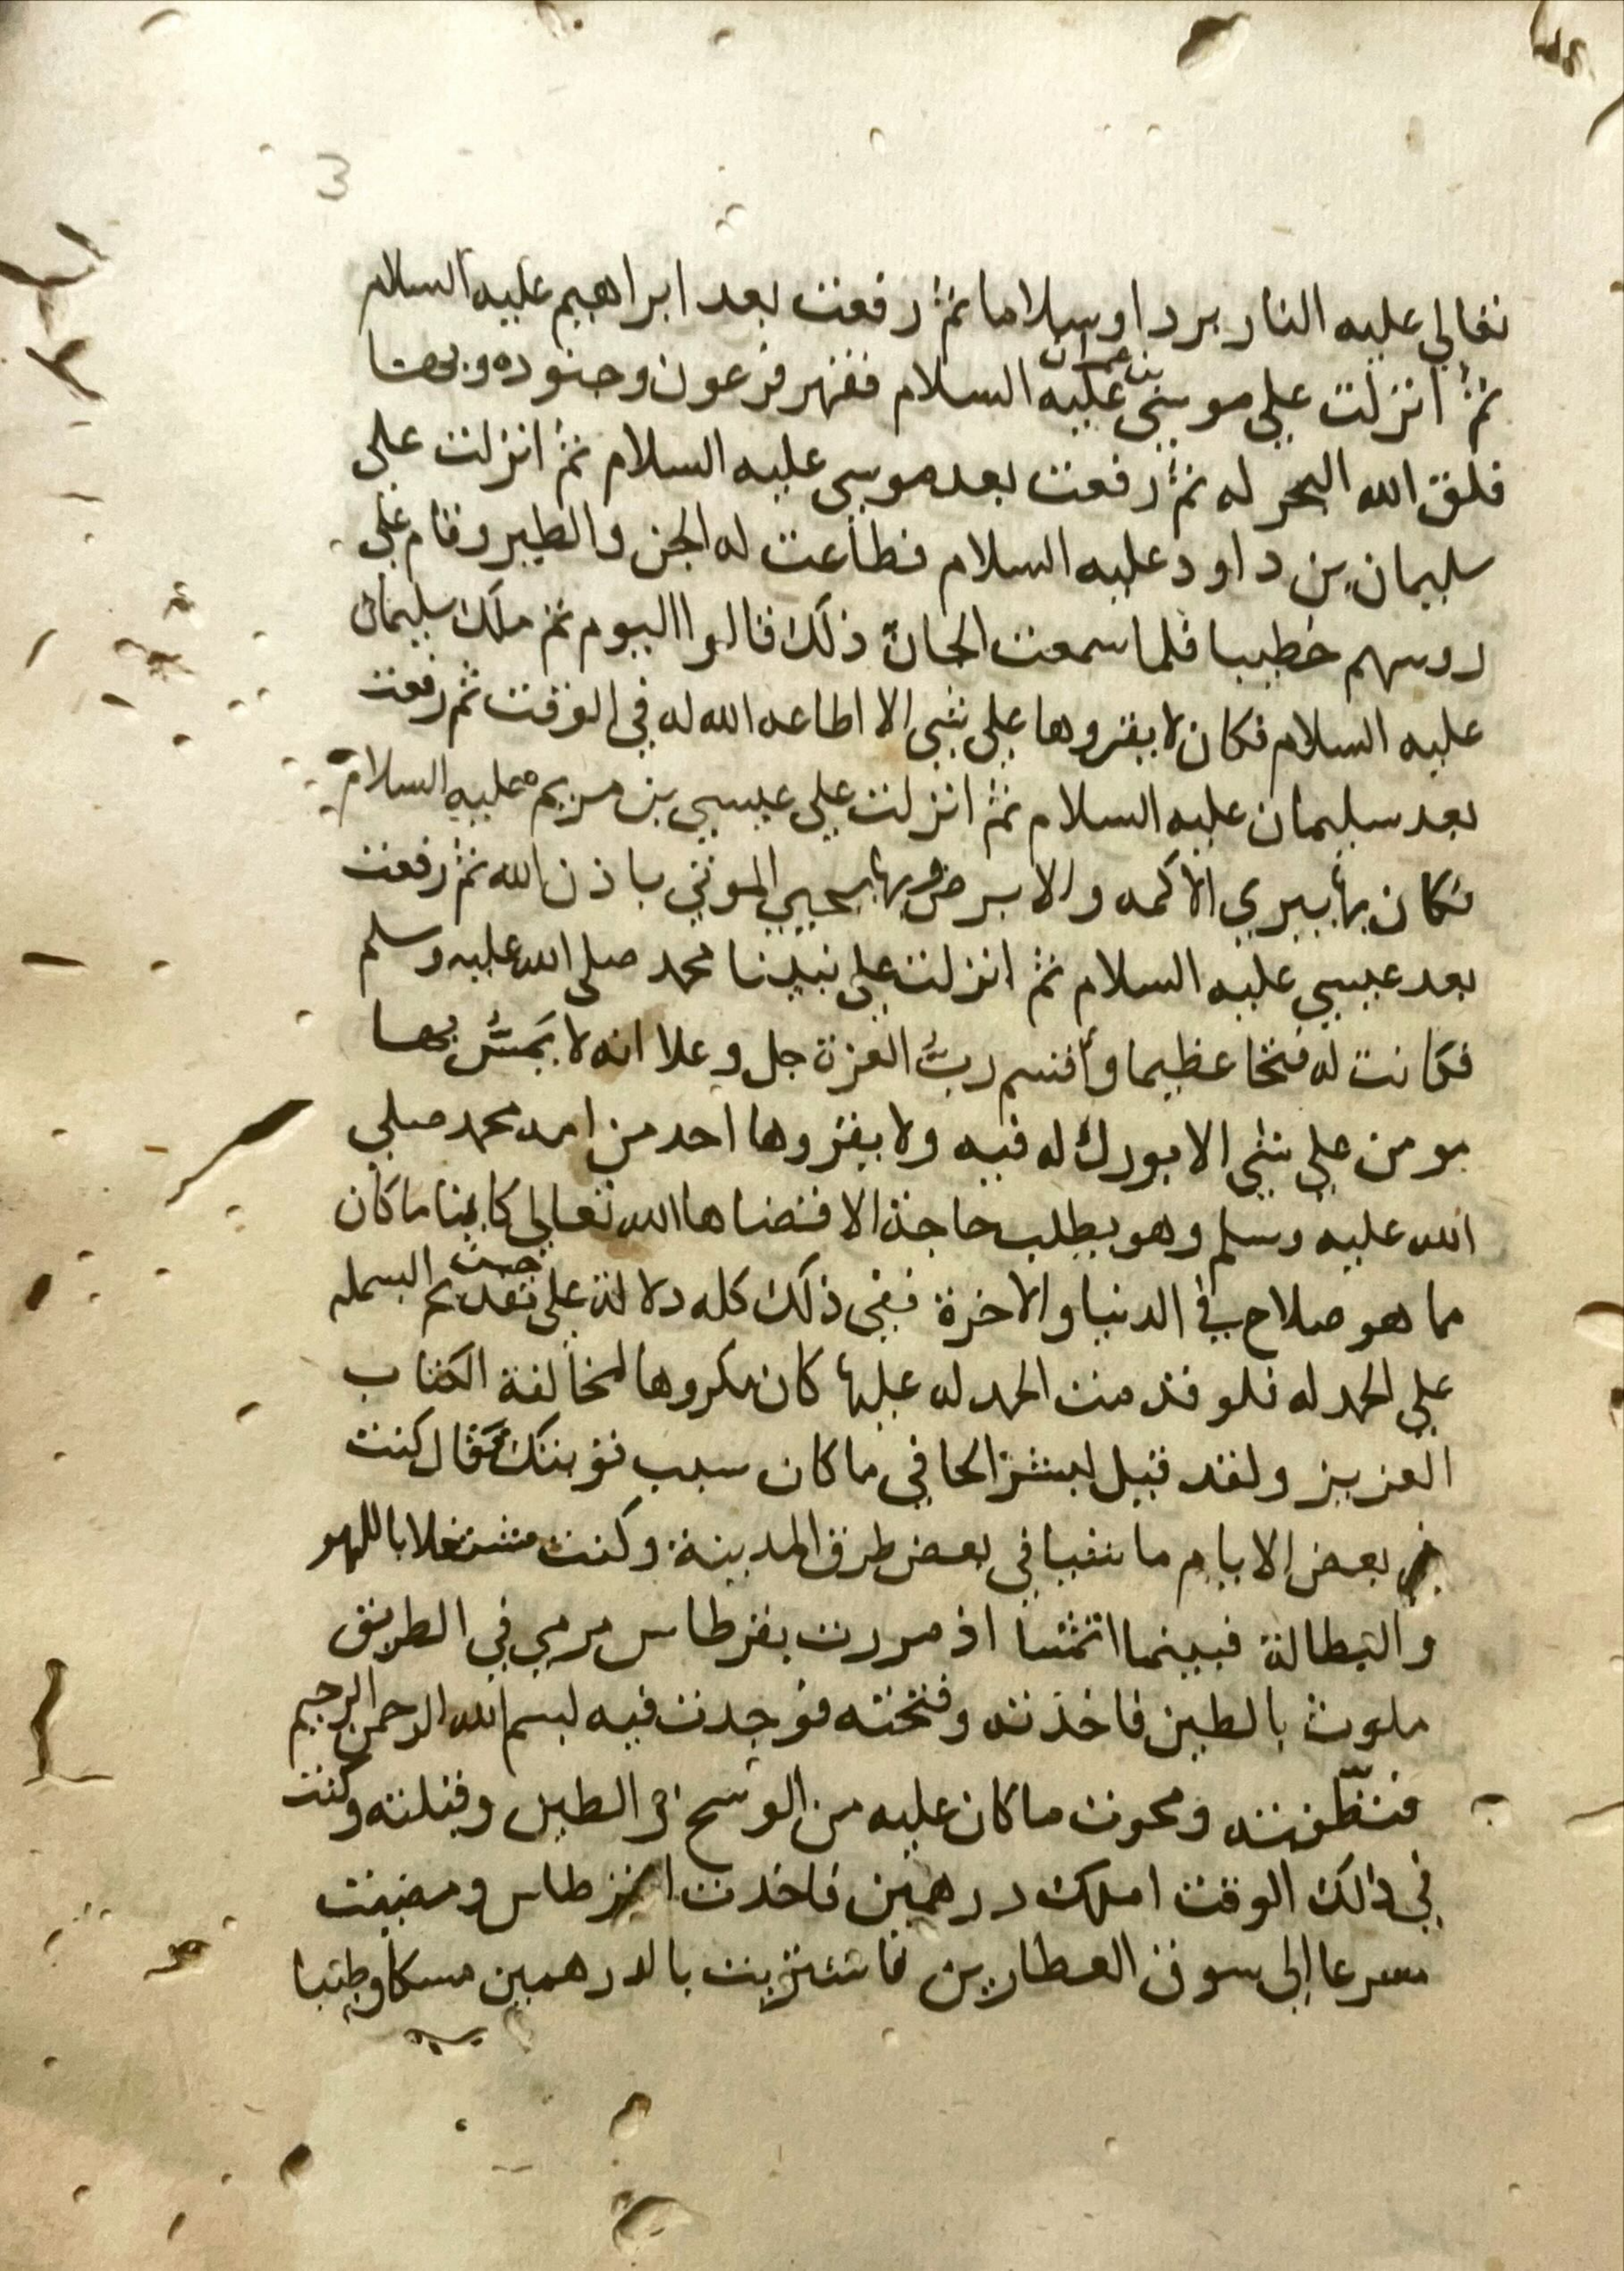 3
تعالي عليه النار بردا وسلاما ثم رفعت بعد ابراهيم عليه السلام
ثم انزلت علي موسي بن عمران عليه السلام فقهر فرعون وجنوده وبها
فلق الله البحر له ثم رفعت بعد موسي عليه السلام ثم انزلت علي
سليمان بن داود عليه السلام فطاعت له الجن والطير وقام علي
روسهم خطيبا فلما سمعت الجان ذلك قالوا اليوم تم ملك سليمان
عليه السلام فكان لا يقروها علي شي الا اطاعه الله له في الوقت ثم رفعت
بعد سليمان عليه السلام ثم انزلت علي عيسي بن مريم عليه السلام
فكان بها يبري الاكمه والابرص وبها يحيي الموتي باذن الله ثم رفعت
بعد عيسي عليه السلام ثم انزلت علي نبينا محمد صلي الله عليه وسلم
فكانت له فتحا عظيما وأقسم ربُّ العزة جل وعلا انه لا يَمسُّ بها
مومن علي شي الا بورك له فيه ولا يقروها احد من امه محمد صلي
الله عليه وسلم وهو يطلب حاجة الا قضاها الله تعالي كاينا ماكان
مما هو صلاح في الدنيا والاخرة ففي ذلك كله دلالة علي تقديم البسمله
علي الحمد له فلو قدمت الحمد له عليها كان مكروها لمخالفة الكتاب
العزيز ولقد قيل لبشر الحافي ما كان سبب توبتك قال كنت
في بعض الايام ماشيا في بعض طرق المدينة وكنت مشتغلا باللهو
والبطالة فبينما اتمشا اذ مررت بقرطاس مرمي في الطريق
ملوث بالطين فاخذته وفتحته فوجدت فيه بسم الله الرحمن الرحيم
فنظّفته ومحوت ما كان عليه من الوسخ والطين وقبلته وكنت
في ذلك الوقت املك درهمين فاخذت القرطاس ومضيت
مسرعا الي سوق العطارين فاشتريت بالدرهمين مسكا وطيبا